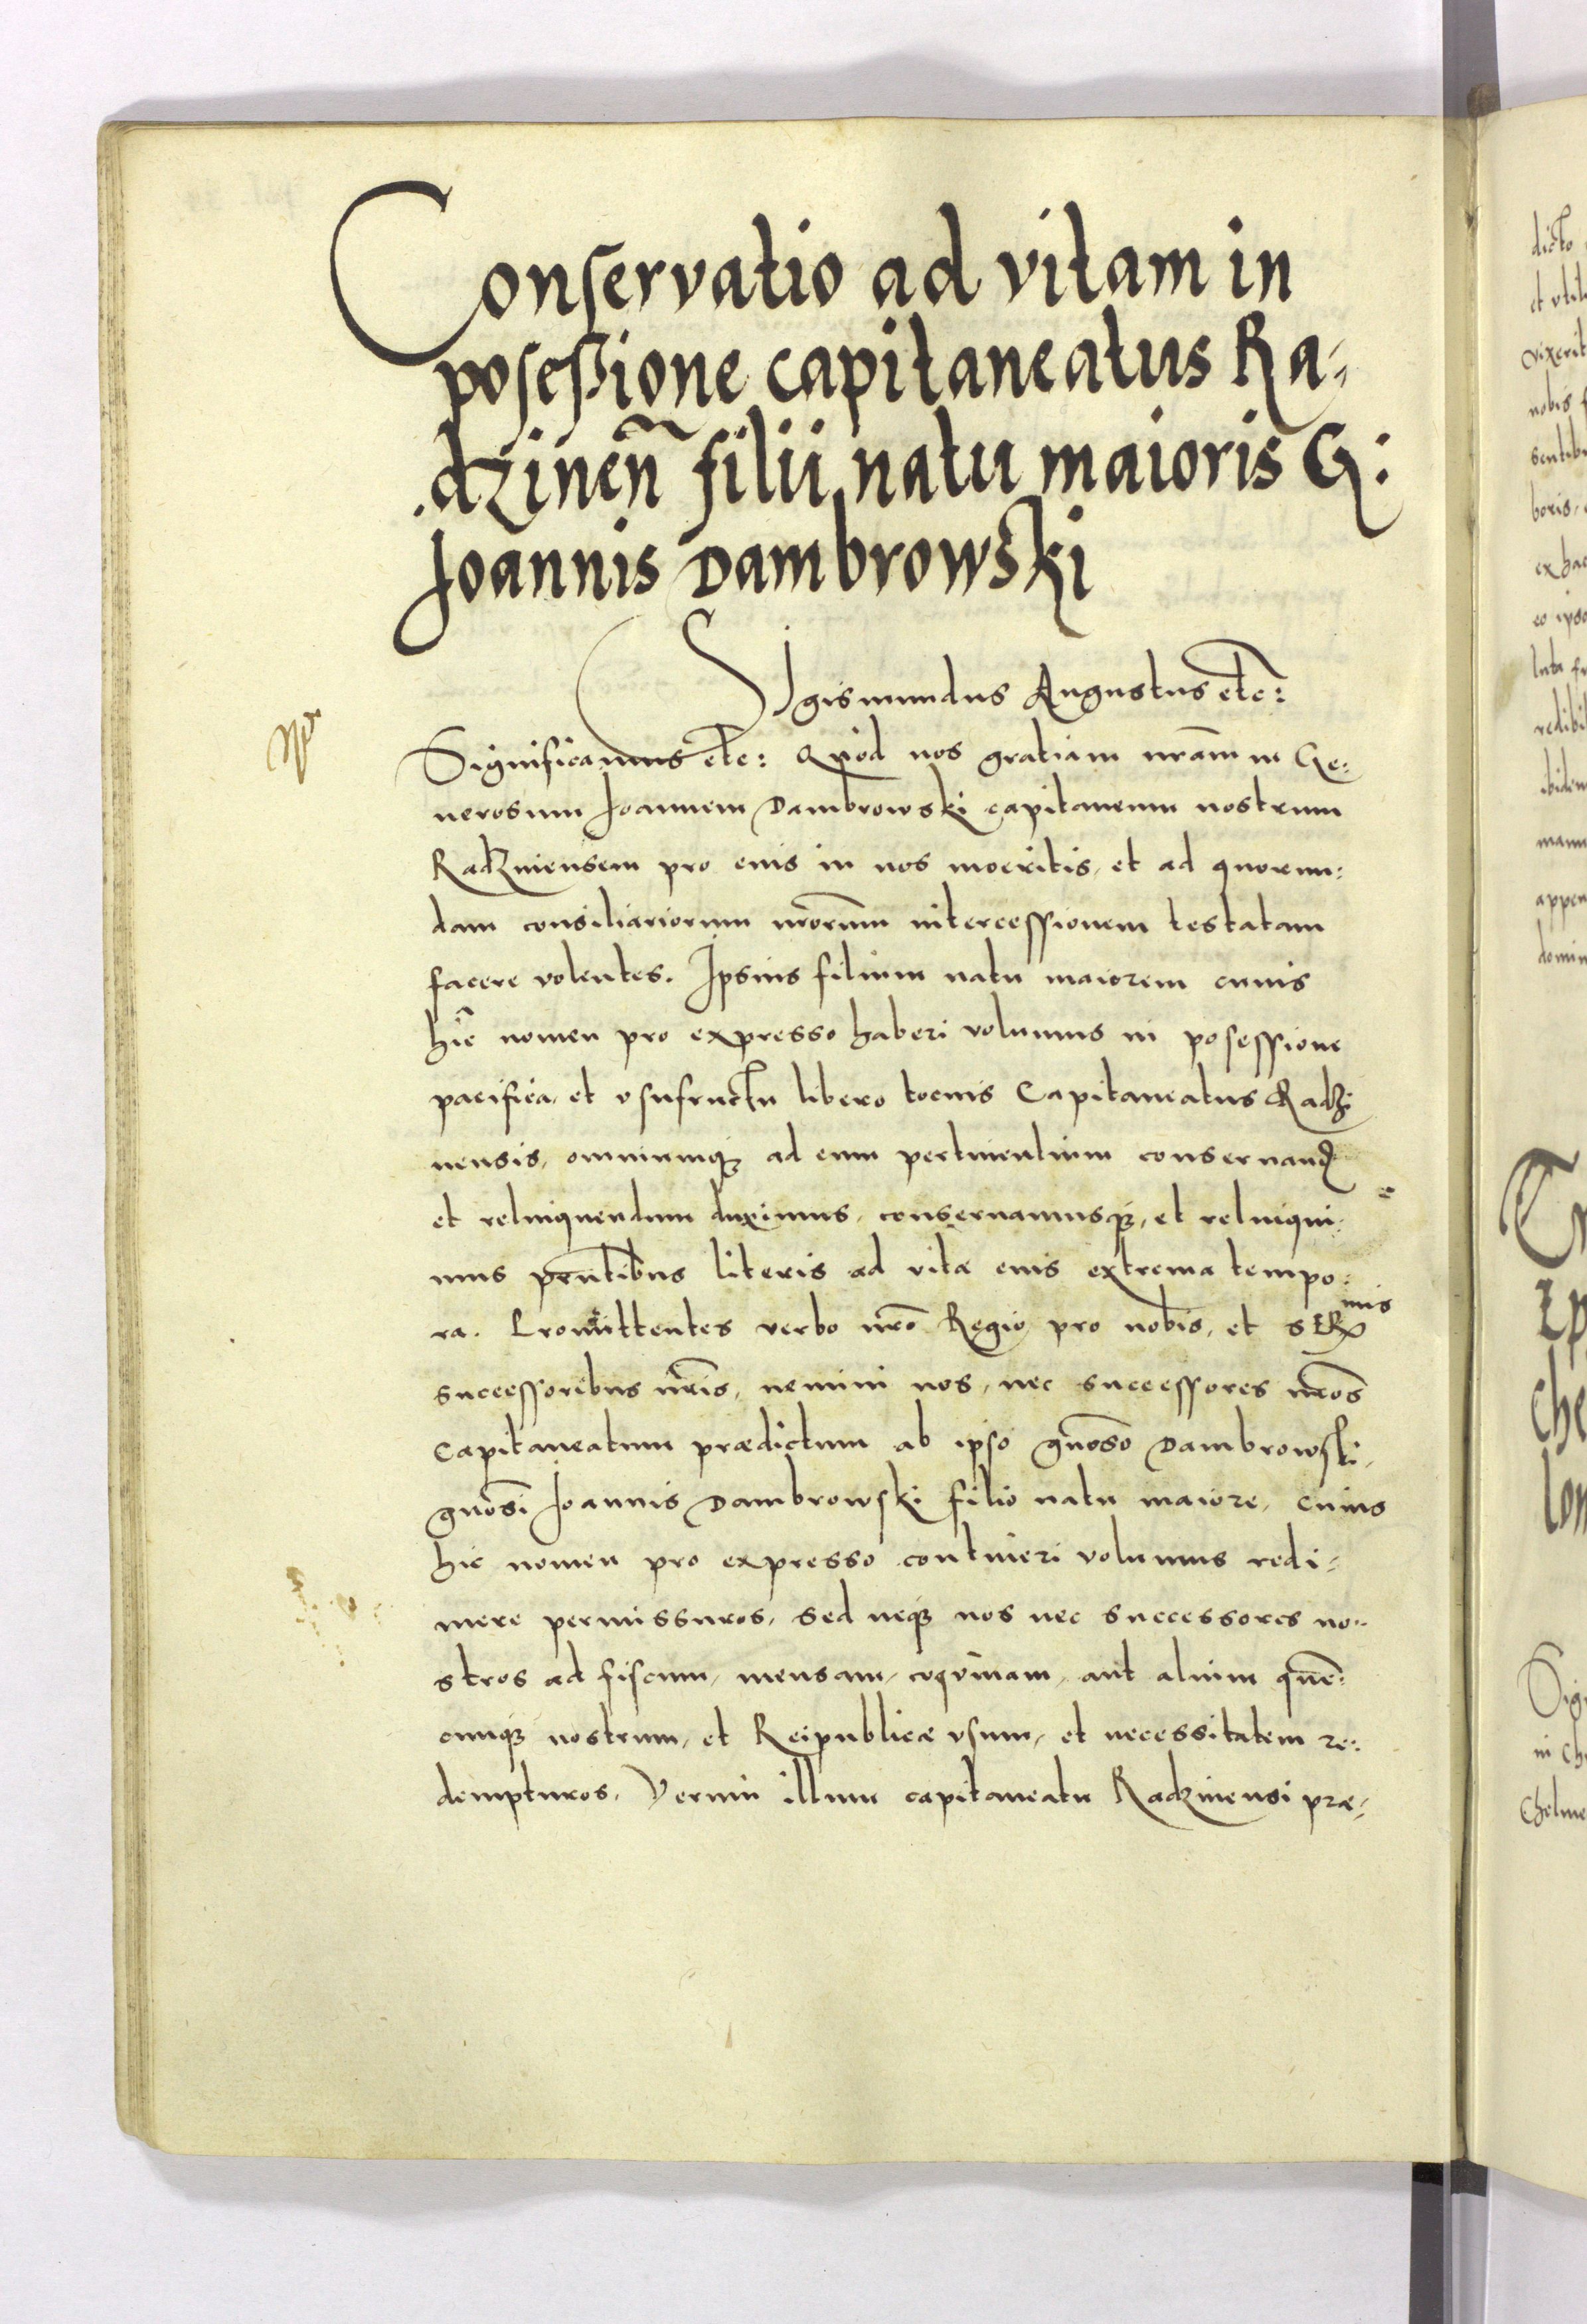 Conservatio ad vitam in
posessione capitaneatus Ra-
dzinen̄ filii natu maioris G:
Joannis Dambrowski
Sigismundus Augustus etc:
Significamus etc: Quod nos gratiam nr̄am in Ge-
nerosum Joannem Dambrowski capitaneum nostrum
Radzinensem pro euis in nos moeritis, et ad quorun-
dam consiliariorum nr̄orum intercessionem testatam
facere volentes. Ipsius filium natu maiorem cuuis
hic nomen pro expresso haberi volumus in posessione
pacifica, et vsufructu libero tocius Capitaneatus Radzi
nensis, omniumq3 ad eum pertinentium conseruand
et relinquendum duximus, conseruamusq3, et relinqui-
mus pr̄ntibus literis ad vitæ euis extrema tempo-
ra. Promittentes verbo nr̄o Regio pro nobis, et Ser.mis
successoribus nr̄is, nemini nos, nec successores nr̄os
Capitaneatum prædictum ab ipso gn̄oso Dambrowski,
gn̄osi Joannis Dambrowski filio natu maiore, cuius
hic nomen pro expresso contineri volumus redi-
mere permissuros, sed neq3 nos nec successores no-
stros ad fiscum, mensam, coqvinam, aut alium quen̄-
cunq3 nostrum, et Reipublicæ vsum, et necessitatem re-
dempturos. Verum illum capitaneatu Radzinensi præ-
dicto
et vtil
vixerit
nobis
boris,
ex hac
eo ipso
redibi
ibidem
appen
domin